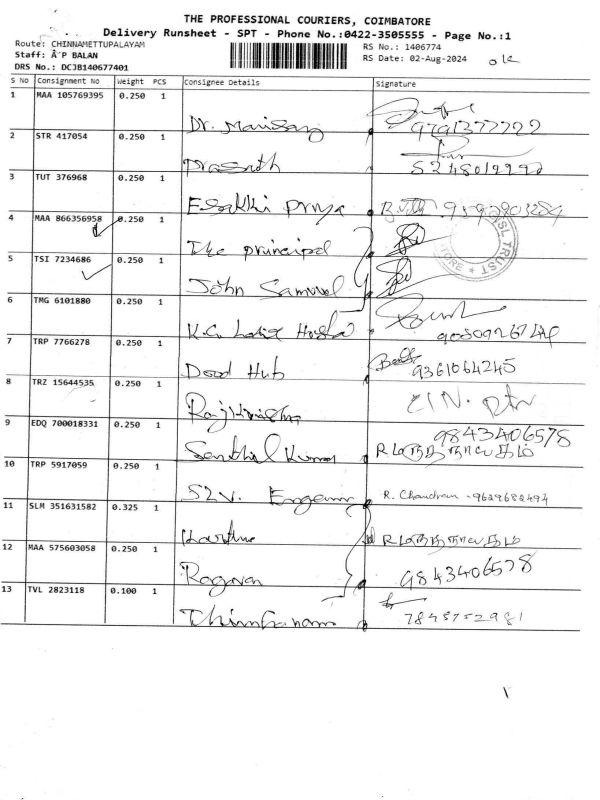 THE PROFESSIONAL COURIERS, COIMBATORE
Delivery Runsheet - SPT - Phone No.:0422-3505555 - Page No.:1
Route: CHINNAMETTUPALAYAM
Staff: Â´P BALAN
DRS No.: DCJB140677401
RS No.: 1406774
RS Date: 02-Aug-2024 ok
S No Consignment No Weight PCS Consignee Details Signature
1 MAA 105769395 0.250 1 Dr. 9791377722
2 STR 417054 0.250 1 Prasath
3 TUT 376968 0.250 1 Esakki Priya
4 MAA 866356958 0.250 1 The principal
5 TSI 7234686 0.250 1 John Samuel
TRUST
6 TMG 6101880 0.250 1 K.G.
7 TRP 7766278 1 0.250 Hub 9361064245
8 TRZ 15644535 0.250 1 Rajkrishna
9 EDQ 700018331 0.250 1 Senthil Kumar 9843406578
10 TRP 5917059 0.250 1 SLV. R. Chandran - 9629682494
11 SLM 351631582 0.325 1
12 MAA 575603058 0.250 1 Ragavan 9843406578
13 TVL 2823118 0.100 1 7845752981